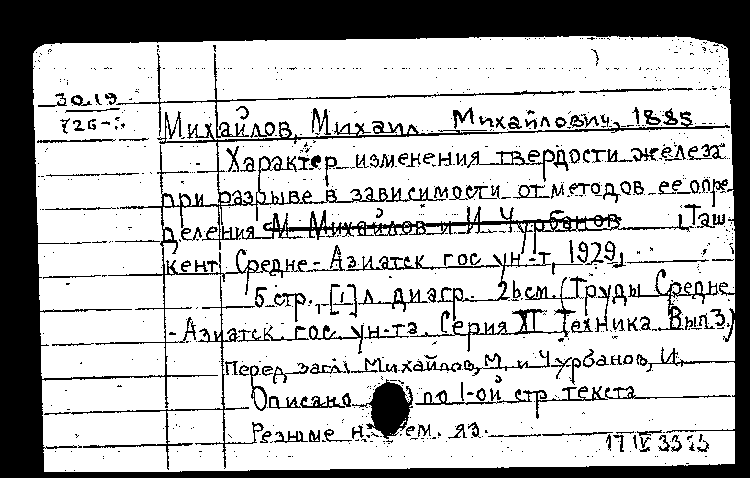 30.19
726-
Михайлов, Михаил Михайлович, 1885
- Характер изменения твердости железа
при разрыве в зависимости от методов ее опре-
деления М. Михайлов и И. Чурбанов Таш-
кент, Средне-Азиатск. гос. ун-т, 1929,
5 стр., [1] л. диагр. 26 см. (Труды Средне-
-Азиатск. гос. ун-та. Серия XI Техника. Вып 3.)
Перед загл: Михайлов, М. и Чурбанов, И.
Описано по 1-ой стр текста
Резюме н. ем. яз.
17 IV 33